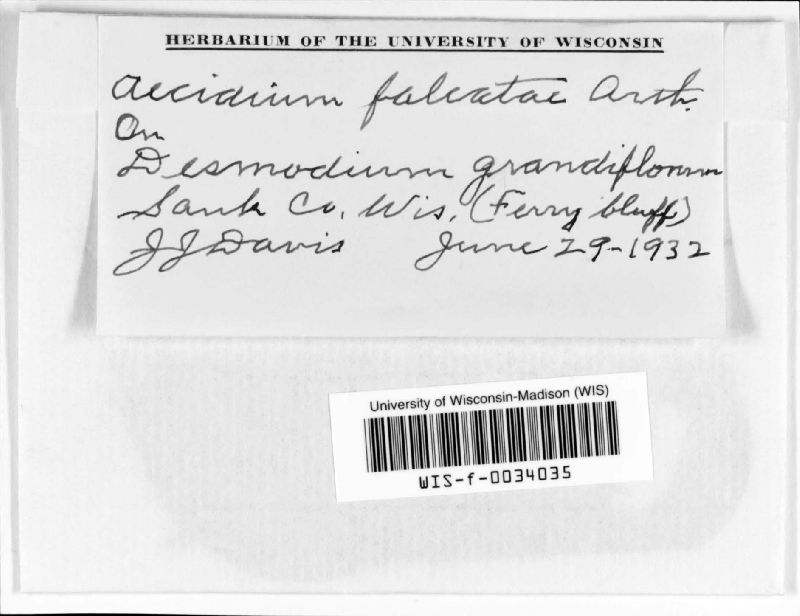 HERBARIUM OF THE UNIVERSITY OF WISCONSIN
Aecidium falcatae Arth.
On
Desmodium grandiflorum
Sauk Co. Wis. (Ferry bluff)
JJ Davis June 29-1932
University of Wisconsin-Madison (WIS)
WIS-f-0034035